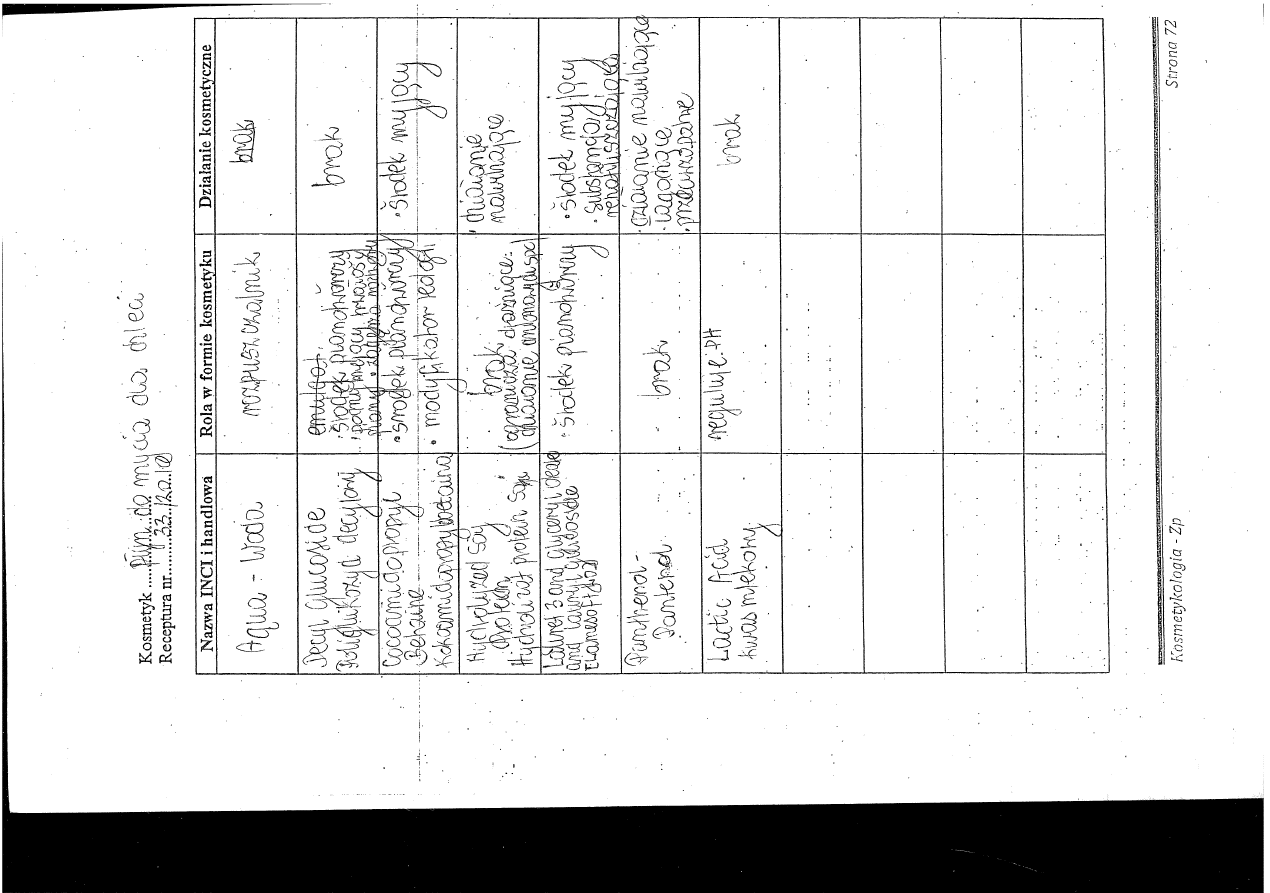 Kosmetyk ......Płyn..do mycia dla dzieci
Receptura nr...........
Nazwa INCI i handlowa
Rola w formie kosmetyku
Działanie kosmetyczne
Aqua - Woda
rozpuszczalnik
brak
Decyl Glucoside
Poliglukozyd decylowy
emulgat.
• Środek pianotwórczy
brak
Cocamidopropyl
Betaine
Kokamidopropylobetaina
• środek pianotwórczy
• modyfikator reologii
• Środek myjący
Hydrolyzed Soy
Protein
Hydrolizat protein Soji
brak
(ogranicza drażniące
• działanie
nawilżające
and lauryl glucoside
• Środek pianotwórczy
• Środek myjący
• Substancja
Panthenol -
Pantenol
brak
• działanie nawilżające
• łagodzące
• przeciwzapalne
Lactic Acid
kwas mlekowy
reguluje pH
brak
Kosmetykologia - Zp
Strona 72